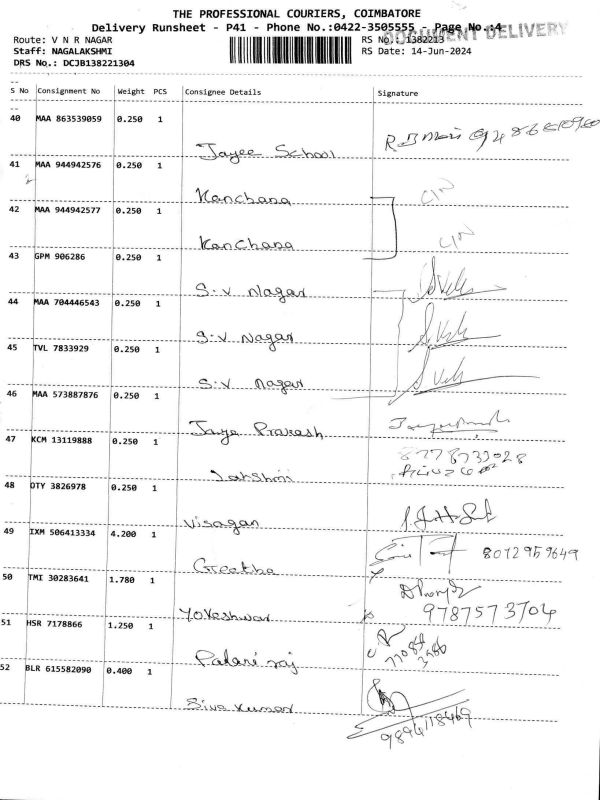 THE PROFESSIONAL COURIERS, COIMBATORE
Delivery Runsheet - P41 - Phone No.:0422-3505555 - Page No.:4
DOCUMENT DELIVERY
Route: V N R NAGAR
RS No.: 1382213
Staff: NAGALAKSHMI
RS Date: 14-Jun-2024
DRS No.: DCJB138221304
S No Consignment No Weight PCS Consignee Details Signature
40 MAA 863539059 0.250 1
Jayee School
41 MAA 944942576 0.250 1
Kanchana
42 MAA 944942577 0.250 1
Kanchana
43 GPM 906286 0.250 1
S.V Nagar
44 MAA 704446543 0.250 1
S.V Nagar
45 TVL 7833929 0.250 1
S.V Nagar
46 MAA 573887876 0.250 1
Jaya Prakash
47 KCM 13119888 0.250 1
8778733028
Lakshmi
48 OTY 3826978 0.250 1
Visagan
49 IXM 506413334 4.200 1
8072959649
Geetha
50 TMI 30283641 1.780 1
Yokeshwar 9787573704
51 HSR 7178866 1.250 1
Palani raj
52 BLR 615582090 0.400 1
Siva kumar
9894118469